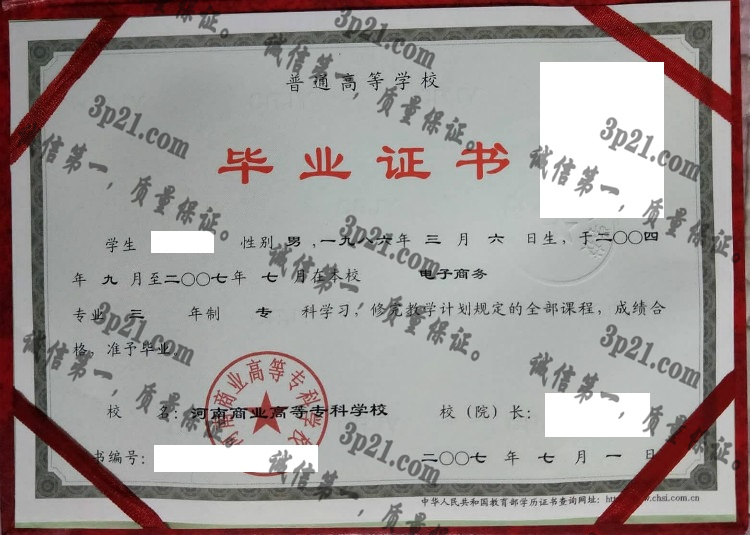 普通高等学校
毕业证书
学生 性别 男 ,一九八六年 三 月 六 日生，于二〇〇四
年 九 月至二〇〇七年 七 月在本校 电子商务
专业 三 年制 专 科学习，修完教学计划规定的全部课程，成绩合
格，准予毕业。
校 名：河南商业高等专科学校 校（院）长：
书编号：
二〇〇七 年 七 月 一 日
河南商业高等专科学校
中华人民共和国教育部学历证书查询网址：http://www.chsi.com.cn
3p21.com
诚信第一，质量保证。
3p21.com
诚信第一，质量保证。
3p21.com
诚信第一，质量保证。
3p21.com
诚信第一，质量保证。
3p21.com
诚信第一，质量保证。
3p21.com
诚信第一，质量保证。
3p21.com
诚信第一，质量保证。
3p21.com
诚信第一，质量保证。